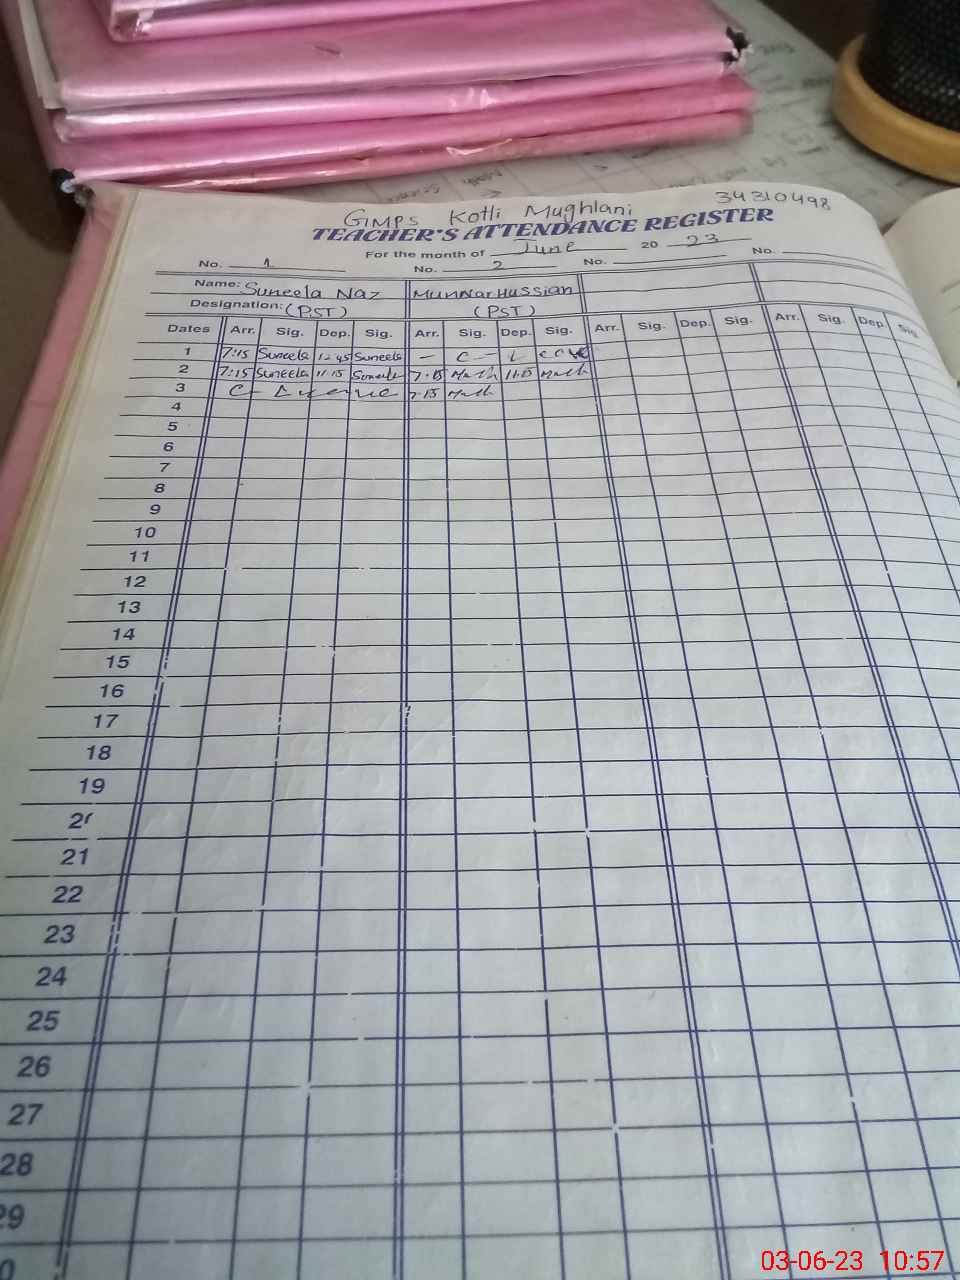 34310498
GMPS Kotli Mughlani
TEACHER'S ATTENDANCE REGISTER
For the month of June 20 23
No. 1 No. 2 No. No.
Name: Suneela Naz Munnar Hussian
Designation: (PST) (PST)
Dates Arr. Sig. Dep. Sig. Arr. Sig. Dep. Sig. Arr. Sig. Dep. Sig. Arr. Sig. Dep. Sig
1 7:15 Suneela 12:45 Suneela
2 7:15 Suneela 11:15 Suneela 7:15 11:15
3 7:15
4
5
6
7
8
9
10
11
12
13
14
15
16
17
18
19
21
22
23
24
25
26
27
28
29
03-06-23 10:57